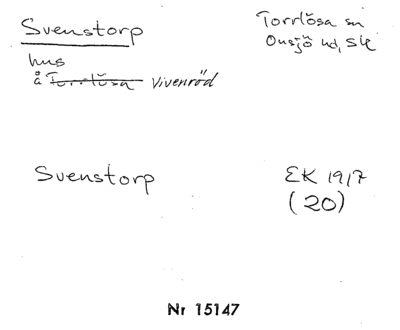 Svenstorp
Torrlösa sn
Onsjö hd, Sk
hus
å Torrlösa Vivenröd
Svenstorp
EK 1917
(20)
Nr 15147